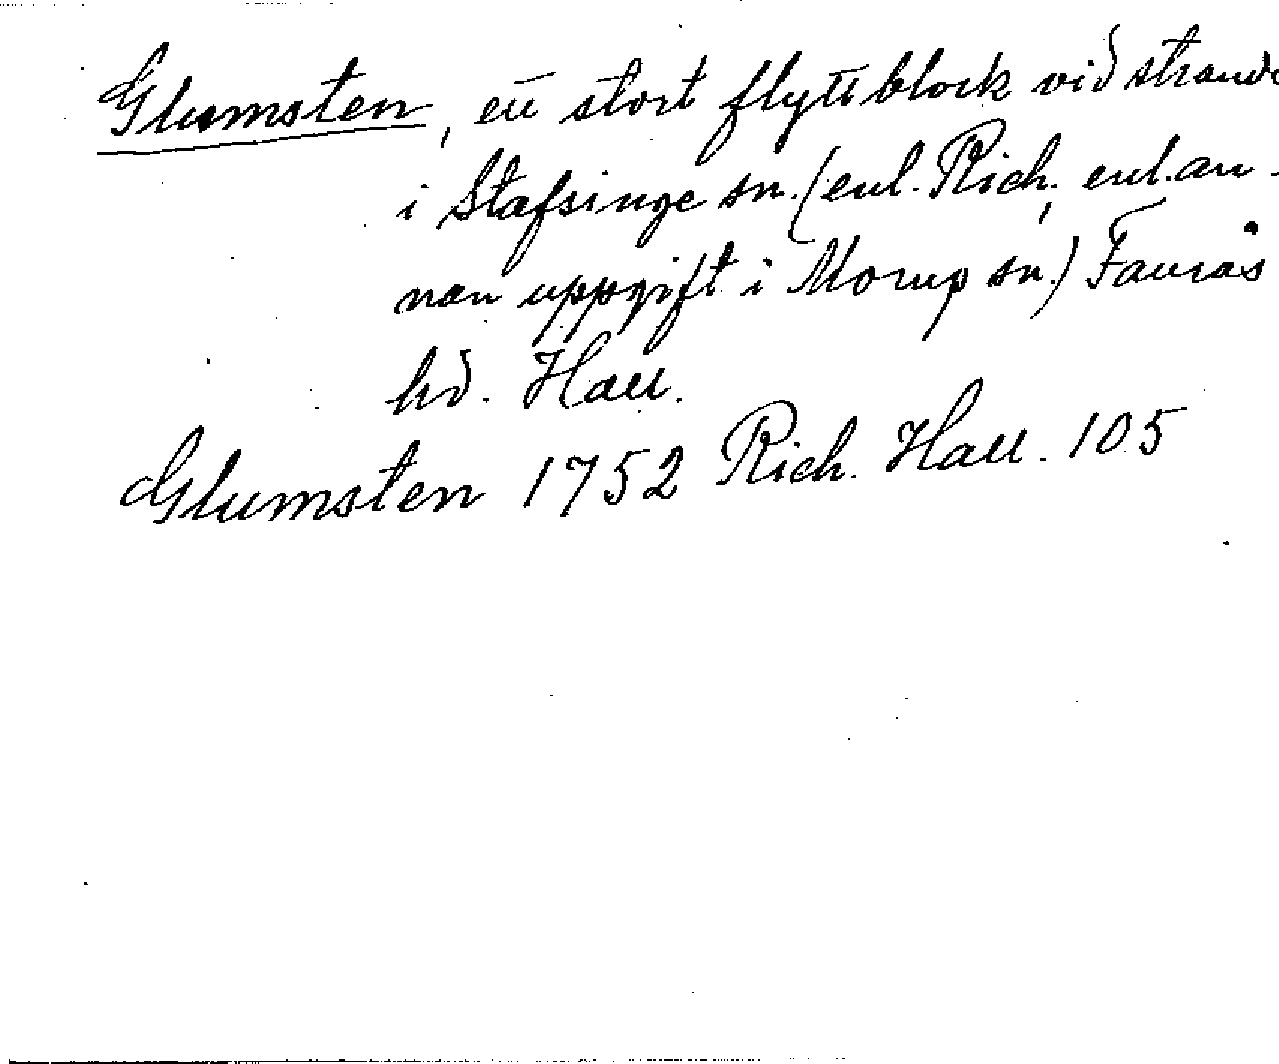 Glumsten, ett stort flyttblock vid strande
i Stafsinge sn. (enl. Rich., enl. an-
nan uppgift i Morup sn.) Faurås
hd. Hall.
Glumsten 1752 Rich. Hall. 105